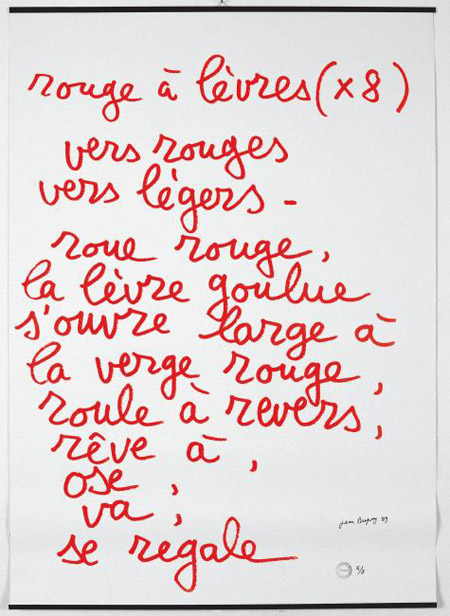 rouge à lèvres (x 8)
vers rouges
vers légers -
roue rouge,
la lèvre goulue
s'ouvre large à
la verge rouge,
roule à revers,
rêve à,
ose,
va,
se regale
jean Dupuy 89